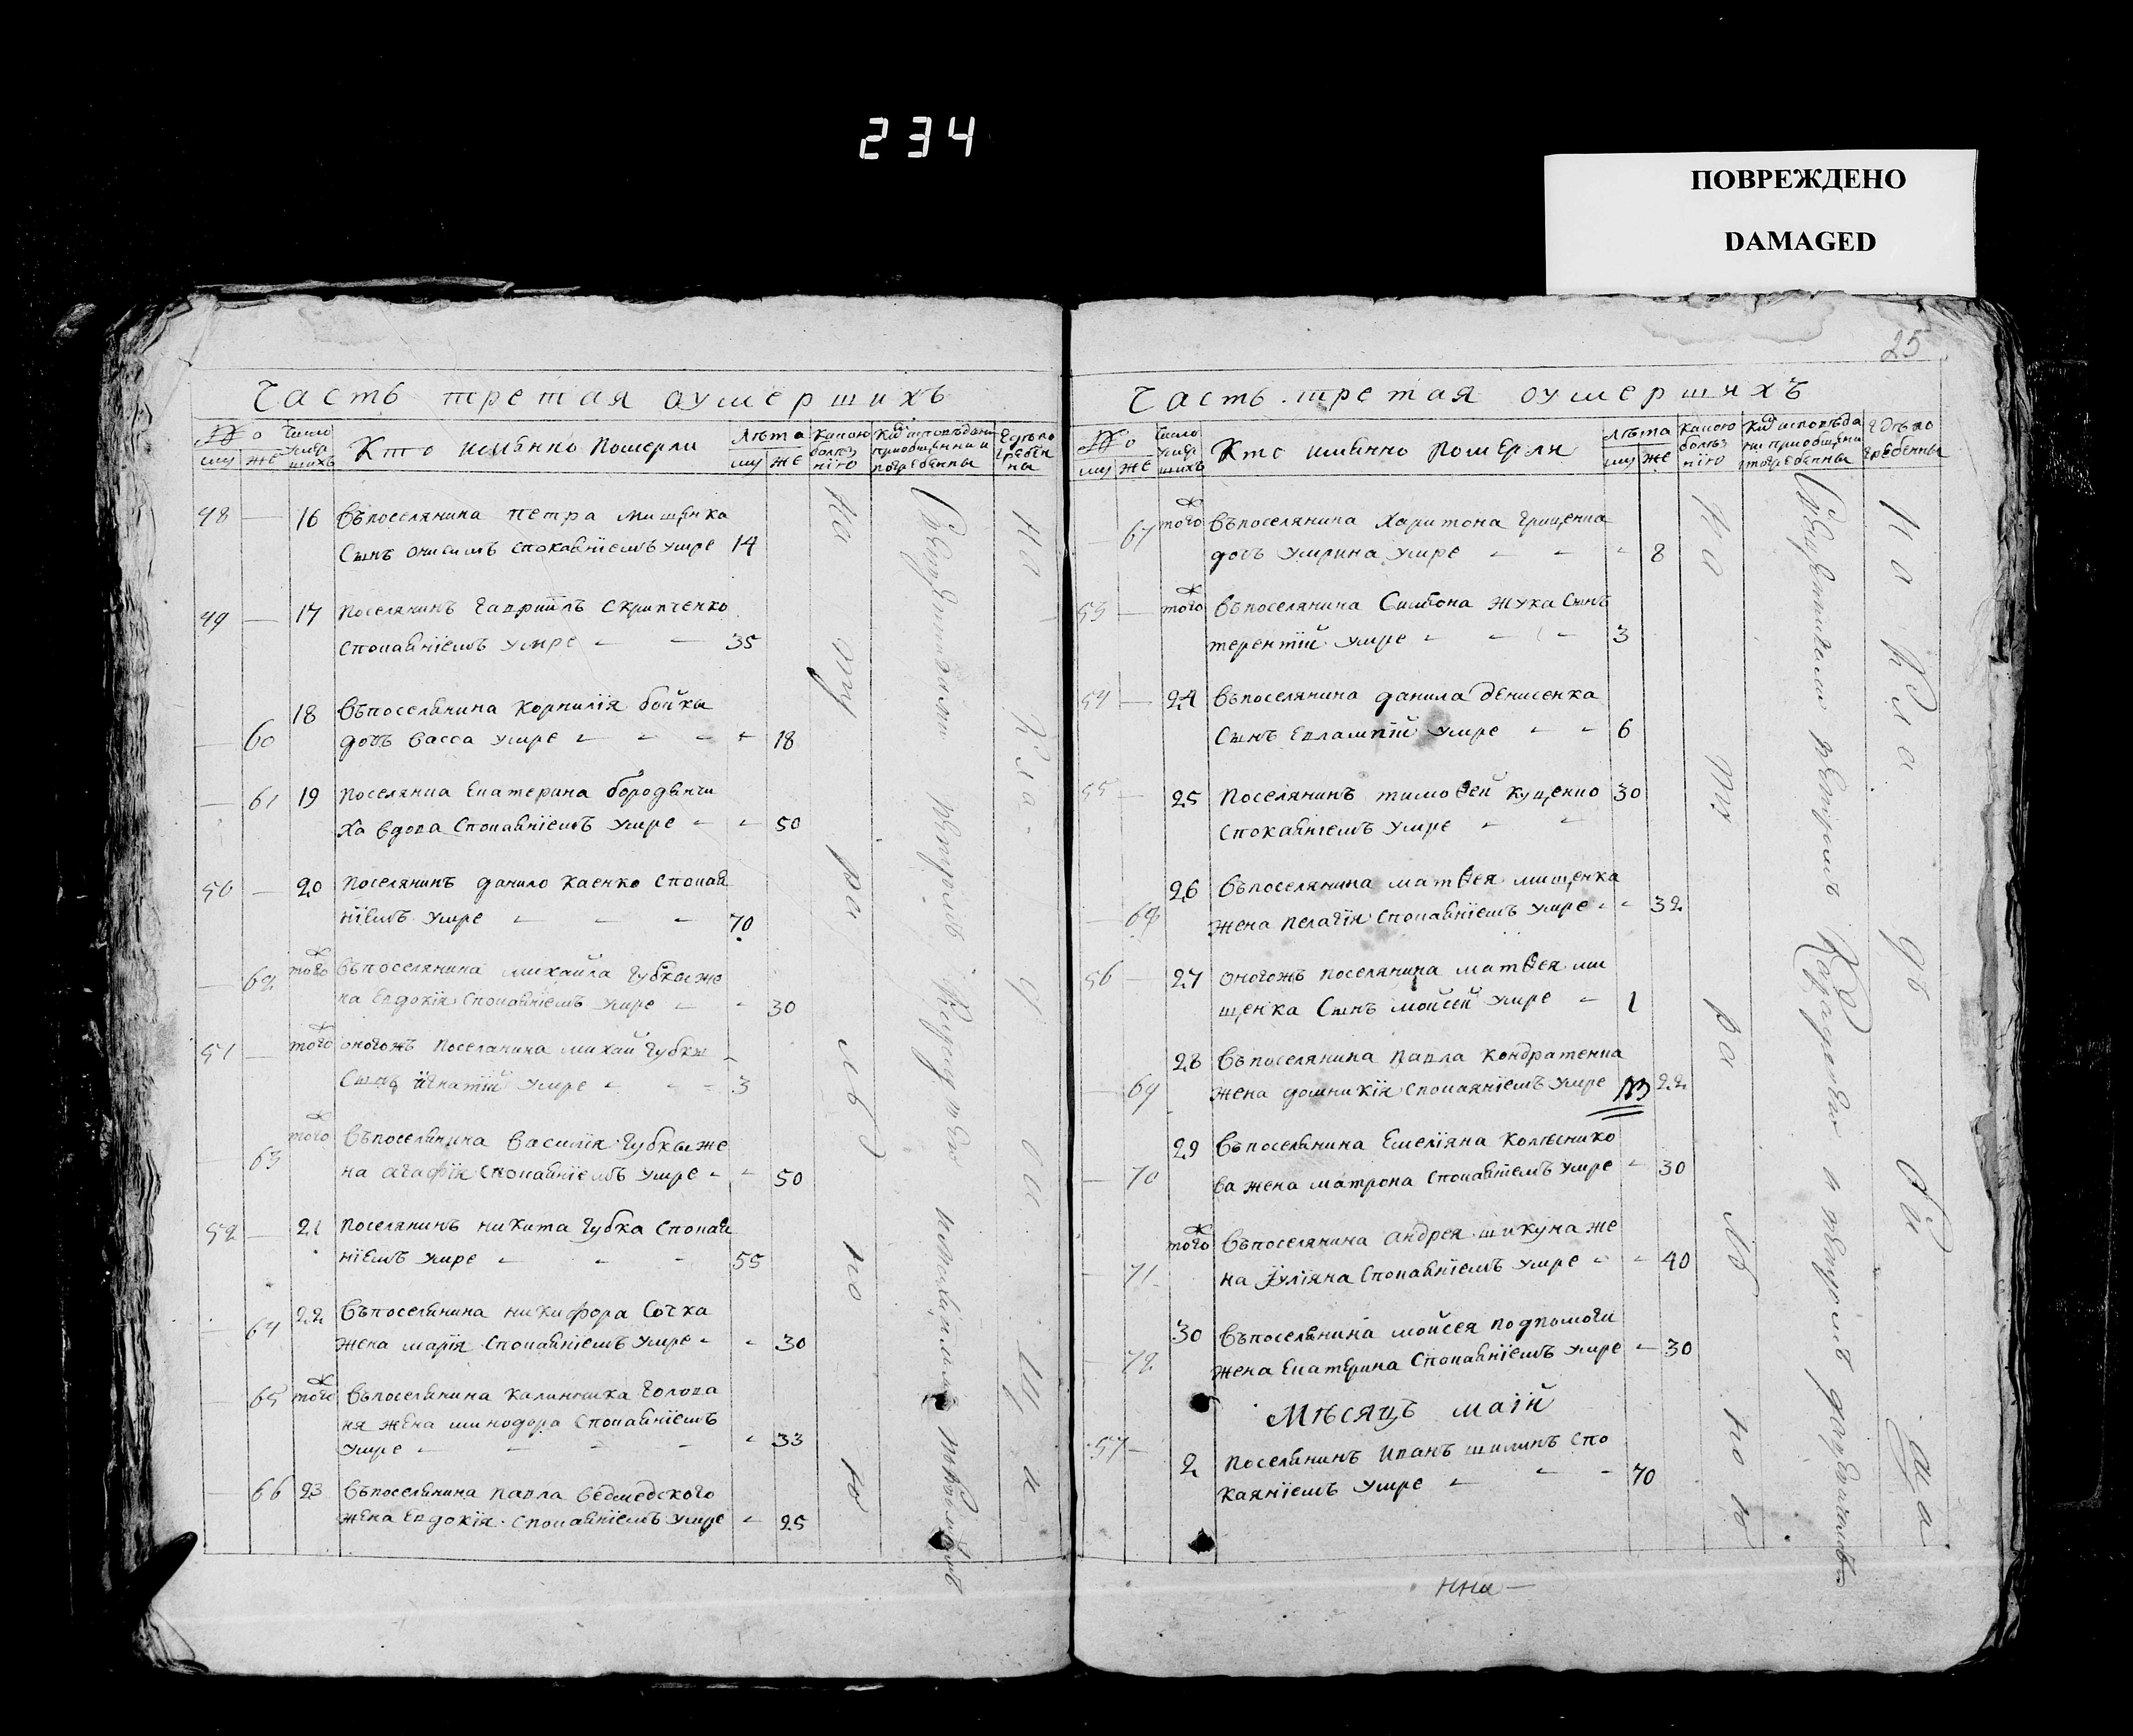 234
ПОВРЕЖДЕНО
DAMAGED
Часть третая оумершихъ
№ о
му же
Число умершихъ
Кто имянно Померли
Лѣта
му же
Какою болѣзнію
Кѣмъ исповѣданы приобщенны и погребенны
Гдѣ погребенны
48 — 16 въ поселянина петра мищенка
Сынъ онисимъ спокаяніемъ умре 14
49 — 17 Поселянинъ гавріилъ Скрипченко
спокаяніемъ умре 35
18 въ поселянина корнилія бойка
— 60 дочь васса умре 18
— 61 19 поселянка Екатерина бородънчи
ха вдова спокаяніемъ умре 50
50 — 20 Поселянинъ данило каенко спокая
ніемъ умре 70
— 62 того ж въ поселянина михайла губки же
на Евдокія спокаяніемъ умре 30
51 — того ж оногожъ поселянина михай губки
Сынъ игнатій умре 3
— 63 того ж въ поселянина василія губки же
на агафія спокаяніемъ умре 50
52 — 21 поселянинъ никита губка спокая
ніемъ умре 55
— 64 22 въ поселянина никифора Сочка
жена марія спокаяніемъ умре 30
— 65 того ж въ поселянина калинника голова
ня жена минодора спокаяніемъ
умре 33
— 66 23 въ поселянина павла ведмедского
жена Евдокія спокаяніемъ умре 25
Натуралною
На кладовищи
25
Часть третая оумершихъ
№ о
му же
Число умершихъ
Кто имянно Померли
Лѣта
му же
Какою болѣзнію
Кѣмъ исповѣданы приобщены и погребенны
Гдѣ погребенны
— 67 того ж въ поселянина харитона грищенка
дочь умрина умре 8
53 — того ж въ поселянина Симеона жука Сынъ
терентій умре 3
54 — 24 въ поселянина данила денисенка
Сынъ Евлампій умре 6
55 — 25 Поселянинъ тимоѳей куценко 30
спокаяніемъ умре
— 68 26 въ поселянина матѳея мищенка
жена пелагія спокаяніемъ умре 32
56 — 27 оногожъ поселянина матѳея ми
щенка Сынъ мойсей умре 1
28 въ поселянина павла кондратенка
— 69 жена домникія спокаяніемъ умре 22
29 въ поселянина Емеліяна колѣснико
— 70 ва жена матрона спокаяніемъ умре 30
того ж въ поселянина андрея шикуна же
— 71 на Іуліяна спокаяніемъ умре 40
30 въ поселянина мойсея подпомоги
— 72 жена Екатерина спокаяніемъ умре 30
Мѣсяцъ маій
57 — 2 поселянинъ иванъ шилинъ спо
каяніемъ умре 70
Натуралною
На кладовища